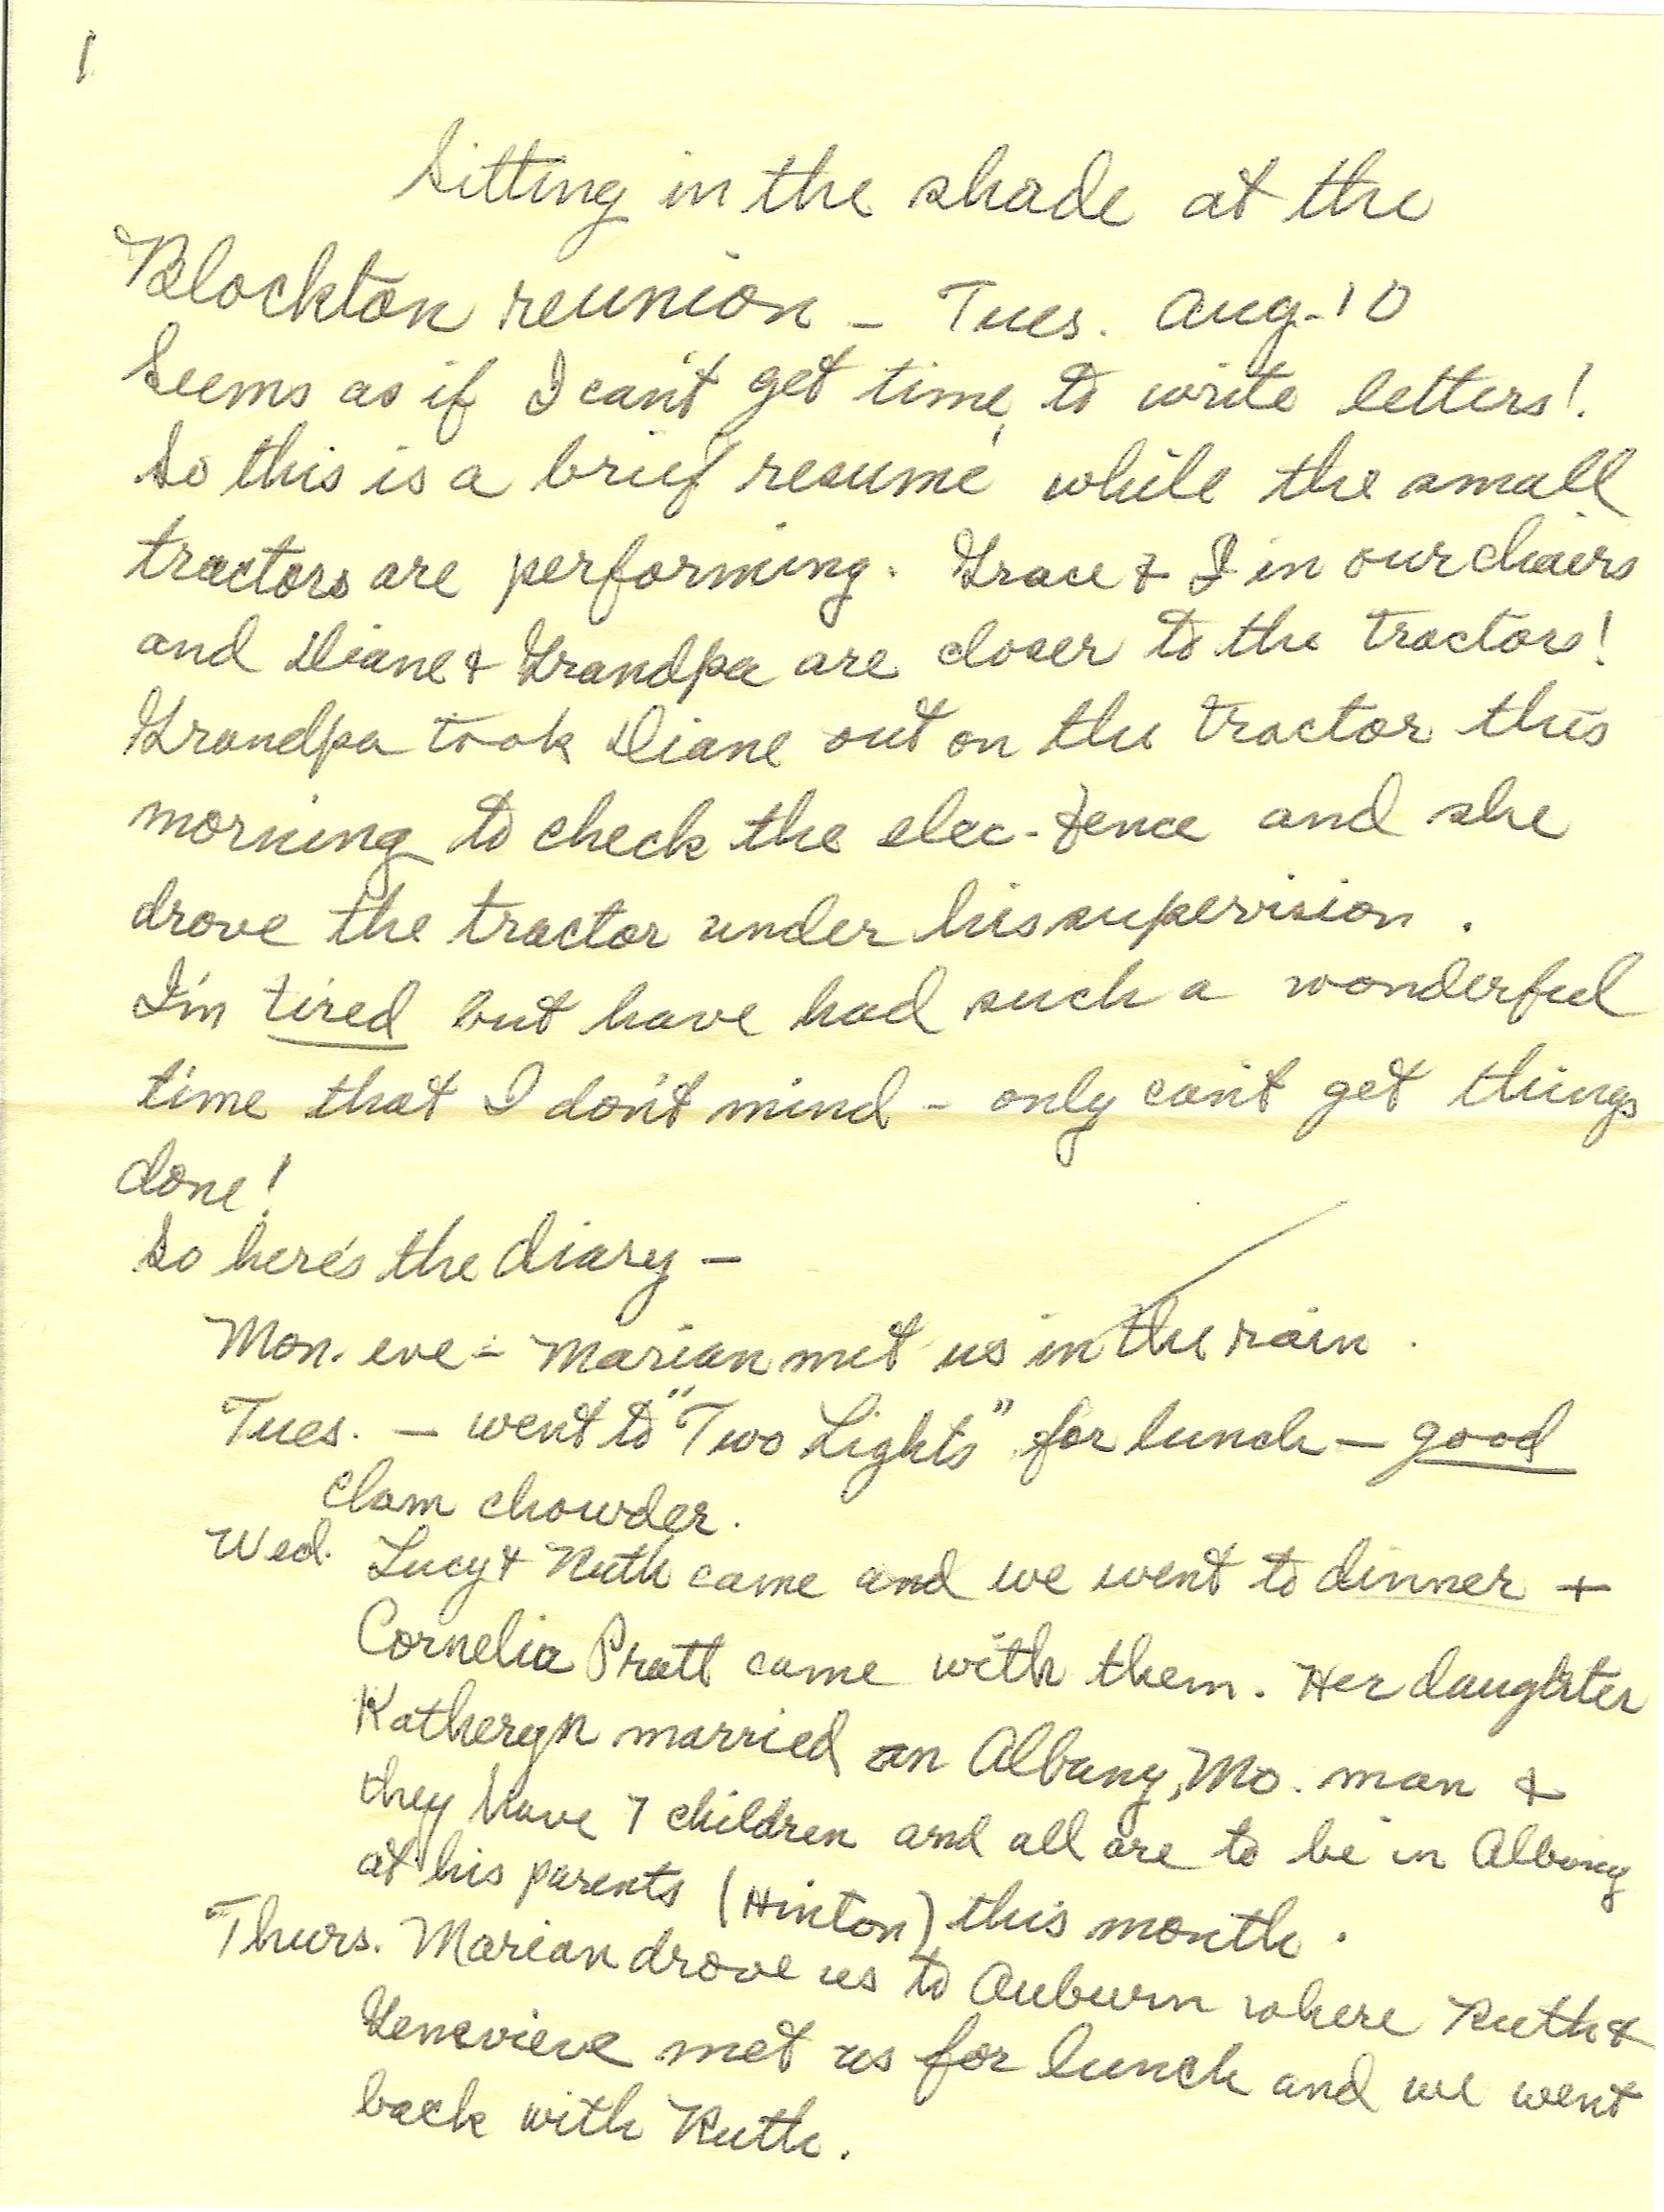 1
Sitting in the shade at the
Blockton reunion - Tues. Aug-10
Seems as if I can't get time to write letters!
So this is a brief resumé while the small
tractors are performing. Grace & I in our chairs
and Diane & Grandpa are closer to the tractors!
Grandpa took Diane out on the tractor this
morning to check the elec-fence and she
drove the tractor under his supervision.
I'm tired but have had such a wonderful
time that I don't mind - only can't get things
done!
So here's the diary -
Mon. eve - Marian met us in the rain.
Tues. - went to "Two Lights" for lunch - good
clam chowder.
Wed. Lucy & Ruth came and we went to dinner +
Cornelia Pratt came with them. Her daughter
Katheryn married an Albany, Mo. man &
they have 7 children and all are to be in Albany
at his parents (Hinton) this month.
Thurs. Marian drove us to Auburn where Ruth &
Genevieve met us for lunch and we went
back with Ruth.